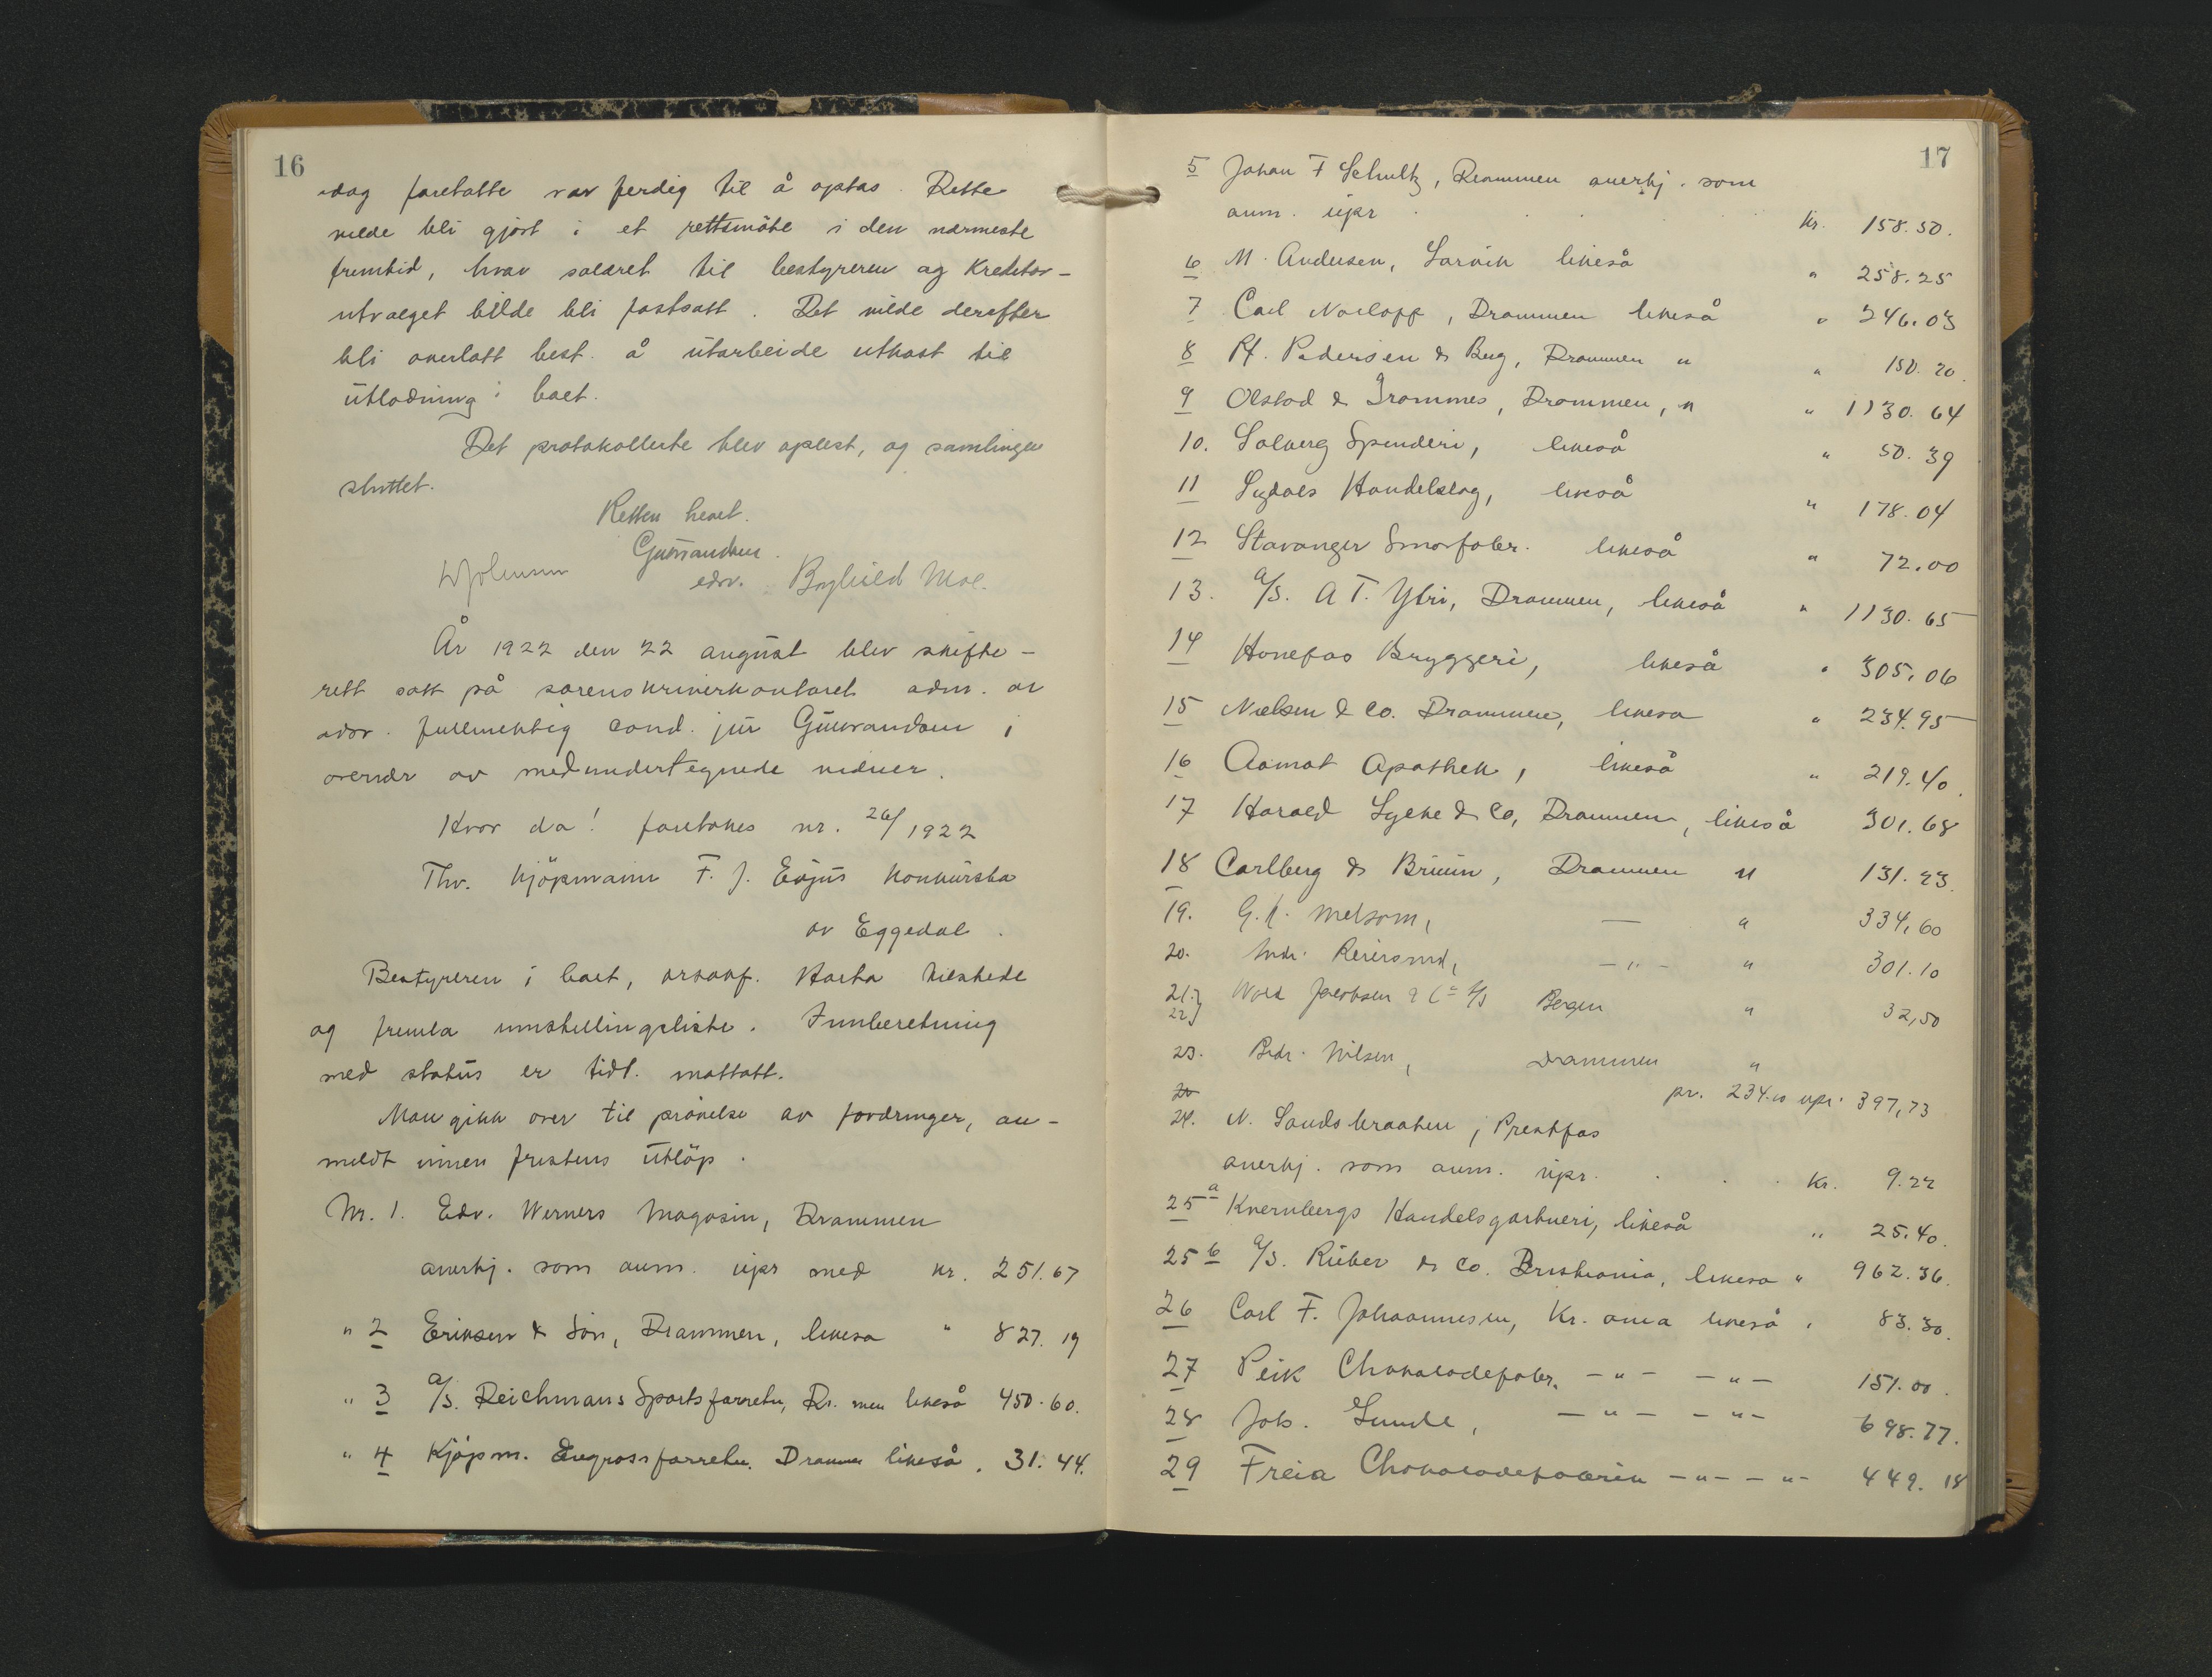 16
idag foretatte var ferdig til å optas. Dette
vilde bli gjort i et rettsmöte i den nærmeste
fremtid, hvor salæret til bestyreren og Kreditor-
utvalget vilde bli fastsatt. Det vilde derefter
bli overlatt best. å utarbeide utkast til
utlodning i boet.
Det protokollerte blev oplest, og samlingen
sluttet.
Retten hevet.
Gunvandsen
edsv. Borghild Moe.
År 1922 den 22 august blev skifte-
rett satt på sorenskriverkontoret adm. av
edsv. fullmektig cand. jur Gunvandsen i
overvær av medundertegnede vidner.
Hvor da! foretokes nr. 26/1922
Thv. kjöpmann F. J. Eojus konkursbo
av Eggedal.
Bestyreren i boet, o.r.sakf. Harbo tilstede
og fremla innstillingsliste. Innberetning
med status er tidl. mottatt.
Man gikk over til prövelse av fordringer, an-
meldt innen fristens utlöp.
Nr. 1. Edv. Werners Magasin, Drammen
anerkj. som anm. upr med kr. 251.67
" 2 Eriksen & Sön, Drammen, likeså " 827.19
" 3 A/S. Reichmans Sportsforretn, Dr. men likeså 450.60.
" 4 Kjöpm. Engrosforretn. Drammen likeså . 31.44.
17
5 Johan F Schultz, Drammen anerkj. som
anm. upr . . . kr. 158.50.
6 M. Andersen, Larvik likeså " 258.25
7 Carl Norlopp, Drammen likeså " 246.03
8 Pf. Pedersen & Berg, Drammen " " 150.20.
9 Olstad & Trommes, Drammen, " " 1130.64
10. Solberg Spinderi, likeså " 50.39
11 Sigdals Handelslag, likeså " 178.04
12 Stavanger Smörfabr. likeså " 72.00
13. A/S. A T. Ytri, Drammen, likeså " 1130.65
14 Hönefos Bryggeri, likeså " 305.06
15 Nielsen & Co. Drammen, likeså " 234.95
16 Aamot Apothek, likeså " 219.40.
17 Harald Lyche & Co, Drammen, likeså 301.68
18 Carlberg & Bruun, Drammen " 131.23.
19. G. A. Melsom, — " 334,60
20. Andr. Reiersrud, — " — " 301.10
21.} Jacobsen & Co A/S Bergen " 32,50
22}
23. Brdr. Nilsen, Drammen "
pr. 234.10 upr. 397,73
24. N. Sandsbraaten, Prestfos
anerkj. som anm. upr. . . . kr. 9.22
25 a Kvernbergs Handelsgartneri, likeså " 25.40.
25 b A/S. Rieber & Co. Kristiania, likeså " 962.36.
26 Carl F. Johannesen, Kr. ania likeså " 83.30.
27 Peik Chokoladefabr. — " — — " — 151.00.
28 Joh. Lunde, — " — — " — 698.77.
29 Freia Chokoladefabrik — " — — " — 449.18